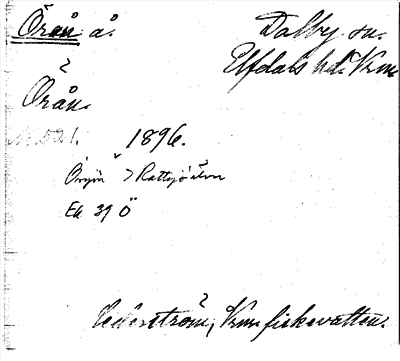 Örån å.
Dalby sn.
Elfdals hd. Vrm
Örån.
1896.
> Rattsjöälven
Ek 39 Ö
Cederström, Vrm fiskevatten.